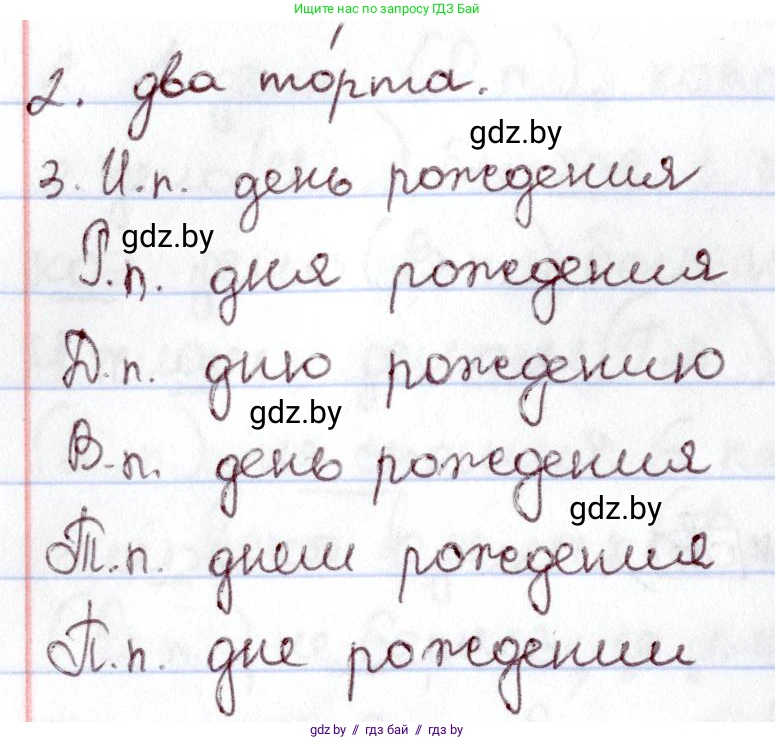 Ищите нас по запросу GDZ.BY
2. два то́рта.
gdz.by
3. И.п. день рождения
gdz.by
Р.п. дня рождения
Д.п. дню рождению
gdz.by
В.п. день рождения
gdz.by
Т.п. днем рождения
П.п. дне рождении
gdz.by // гдз бай // гдз by